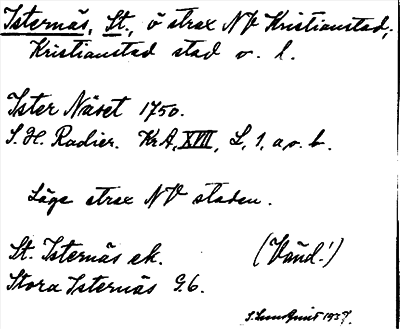 Isternäs, St., ö strax NV Kristianstad,
Kristianstad stad o. l.
Ister Näset 1750.
S. H. Radier. KrA, XVII, L, 1, a o. b.
Läge strax NV staden.
St. Isternäs ek. (Vänd!)
Stora Isternäs G.6.
1937.